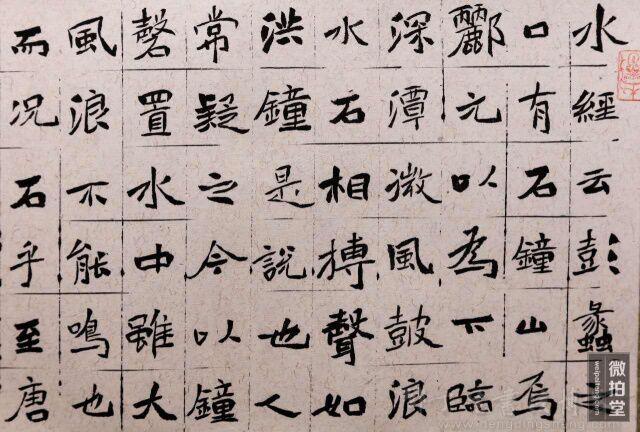 水經云彭蠡之
口有石鐘山焉
酈元以為下臨
深潭微風鼓浪
水石相搏聲如
洪鐘是說也人
常疑之今以鐘
磬置水中雖大
風浪不能鳴也
而况石乎至唐
微拍堂